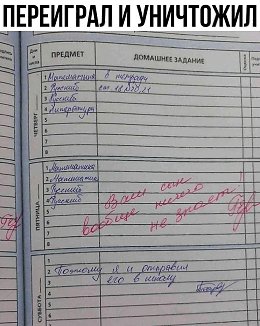 ПЕРЕИГРАЛ И УНИЧТОЖИЛ
ПРЕДМЕТ
ДОМАШНЕЕ ЗАДАНИЕ
ЧЕТВЕРГ
1 Математика в тетради
2 Русский
3 Русский
4 Литература
5
6
7
8
ПЯТНИЦА
1 Математика
2 Математика
3 Русский
4 Русский
5
6
7
8
Ваш сын
вообще ничего
не знает!
СУББОТА
1
2 Поэтому я и отправил
3 его в школу
4
5
6